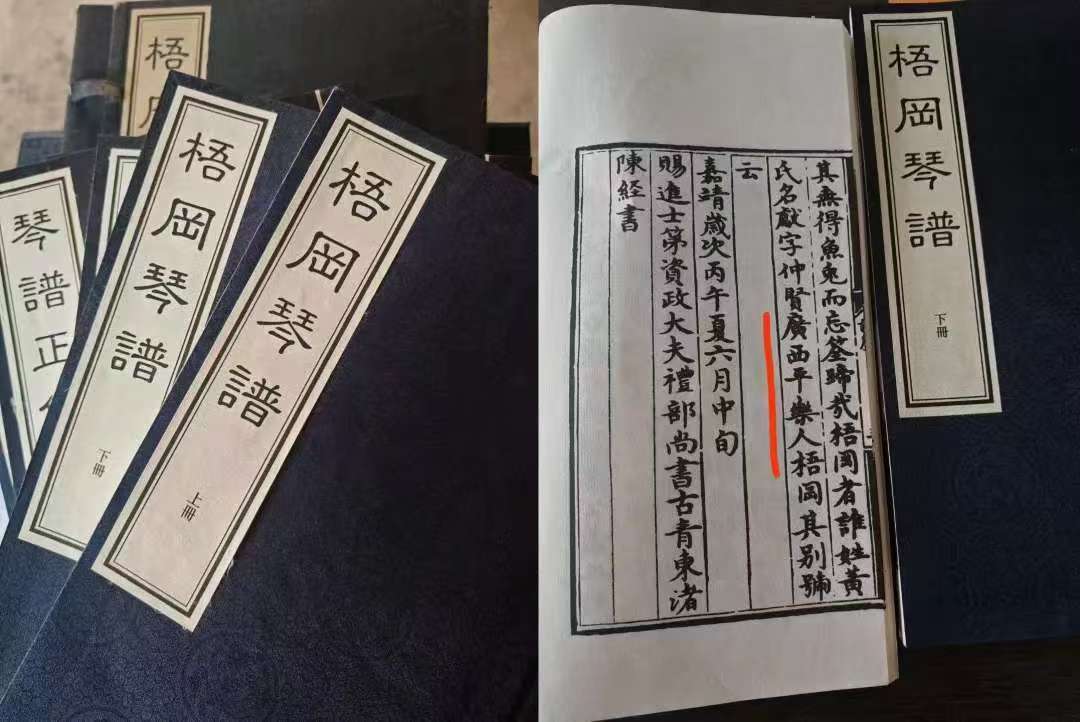 梧
琴譜正
梧岡琴譜
下冊
梧岡琴譜
上冊
其無得魚兎而忘筌蹄哉梧岡者誰姓黃
氏名獻字仲賢廣西平樂人梧岡其别號
云
嘉靖歲次丙午夏六月中旬
賜進士第資政大夫禮部尚書古青東渚
陳經書
梧岡琴譜
下冊